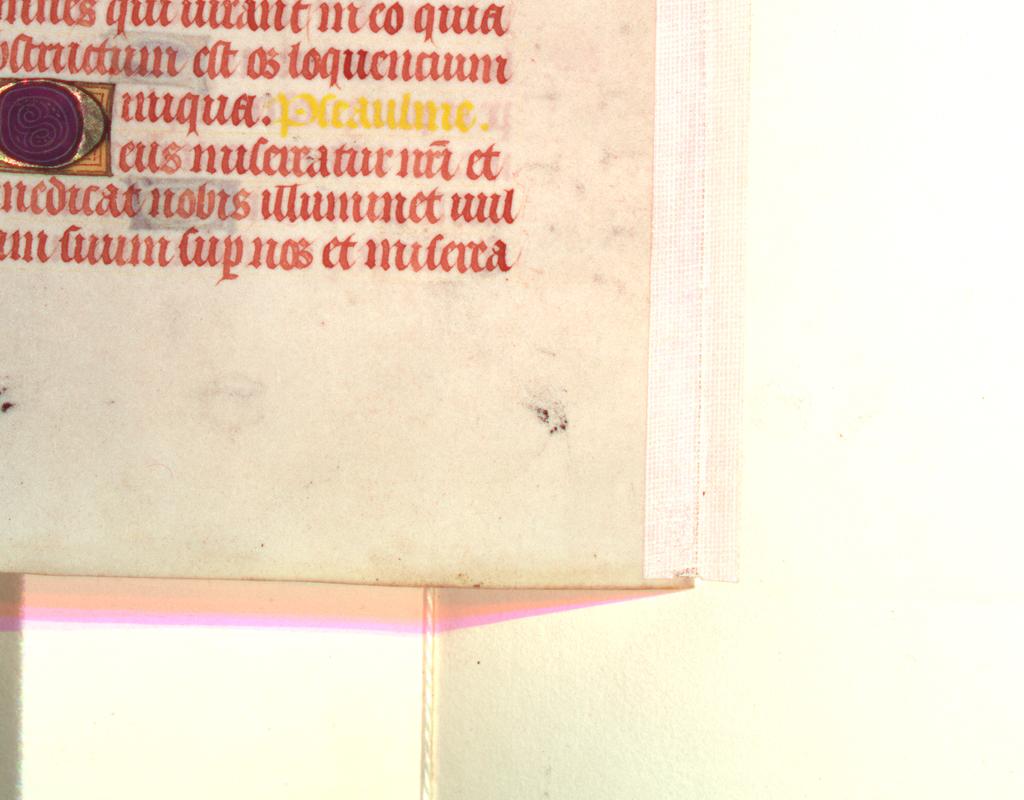 omnes qui iurant in eo quia
obstructum est os loquencium
iniqua. Pseaulme.
eus miseratur nr̄i et
nedicat nobis illuminet vul
um suum suꝑ nos et miserea